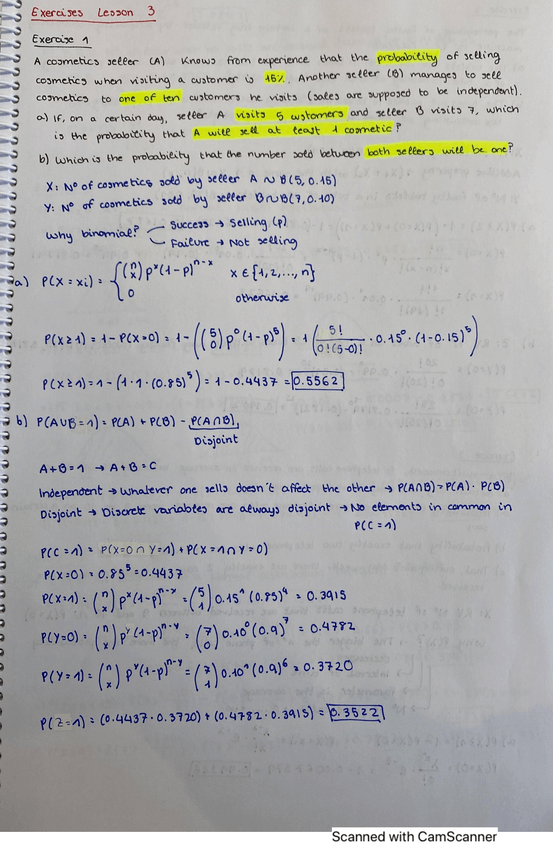 Exercises Lesson 3
Exercise 1
A cosmetics seller (A) knows from experience that the probability of selling
cosmetics when visiting a customer is 15%. Another seller (B) manages to sell
cosmetics to one of ten customers he visits (sales are supposed to be independent).
a) If, on a certain day, seller A visits 5 customers and seller B visits 7, which
is the probability that A will sell at least 1 cosmetic?
b) Which is the probability that the number sold between both sellers will be one?
X: Nº of cosmetics sold by seller A ~ B(5, 0.15)
Y: Nº of cosmetics sold by seller B ~ B(7, 0.10)
Why binomial? Success → Selling (p)
Failure → Not selling
a) P(X = xi) = { (n x) p^x (1-p)^n-x x ∈ {1, 2, ..., n}
0 otherwise
P(X≥1) = 1 - P(X=0) = 1 - ((5 0) p^0 (1-p)^5) = 1 (5! / 0! (5-0)! · 0.15^0 · (1-0.15)^5)
P(X≥1) = 1 - (1·1·(0.85)^5) = 1 - 0.4437 = 0.5562
b) P(A∪B = 1) = P(A) + P(B) - P(A∩B)
Disjoint
A+B=1 → A+B=C
Independent → Whatever one sells doesn't affect the other → P(A∩B) = P(A) · P(B)
Disjoint → Discrete variables are always disjoint → No elements in common in
P(C=1)
P(C=1) = P(X=0 ∩ Y=1) + P(X=1 ∩ Y=0)
P(X=0) = 0.85^5 = 0.4437
P(X=1) = (n x) p^x (1-p)^n-x = (5 1) 0.15^1 (0.85)^4 = 0.3915
P(Y=0) = (n x) p^y (1-p)^n-y = (7 0) 0.10^0 (0.9)^7 = 0.4782
P(Y=1) = (n x) p^y (1-p)^n-y = (7 1) 0.10^1 (0.9)^6 = 0.3720
P(Z=1) = (0.4437 · 0.3720) + (0.4782 · 0.3915) = 0.3522
Scanned with CamScanner